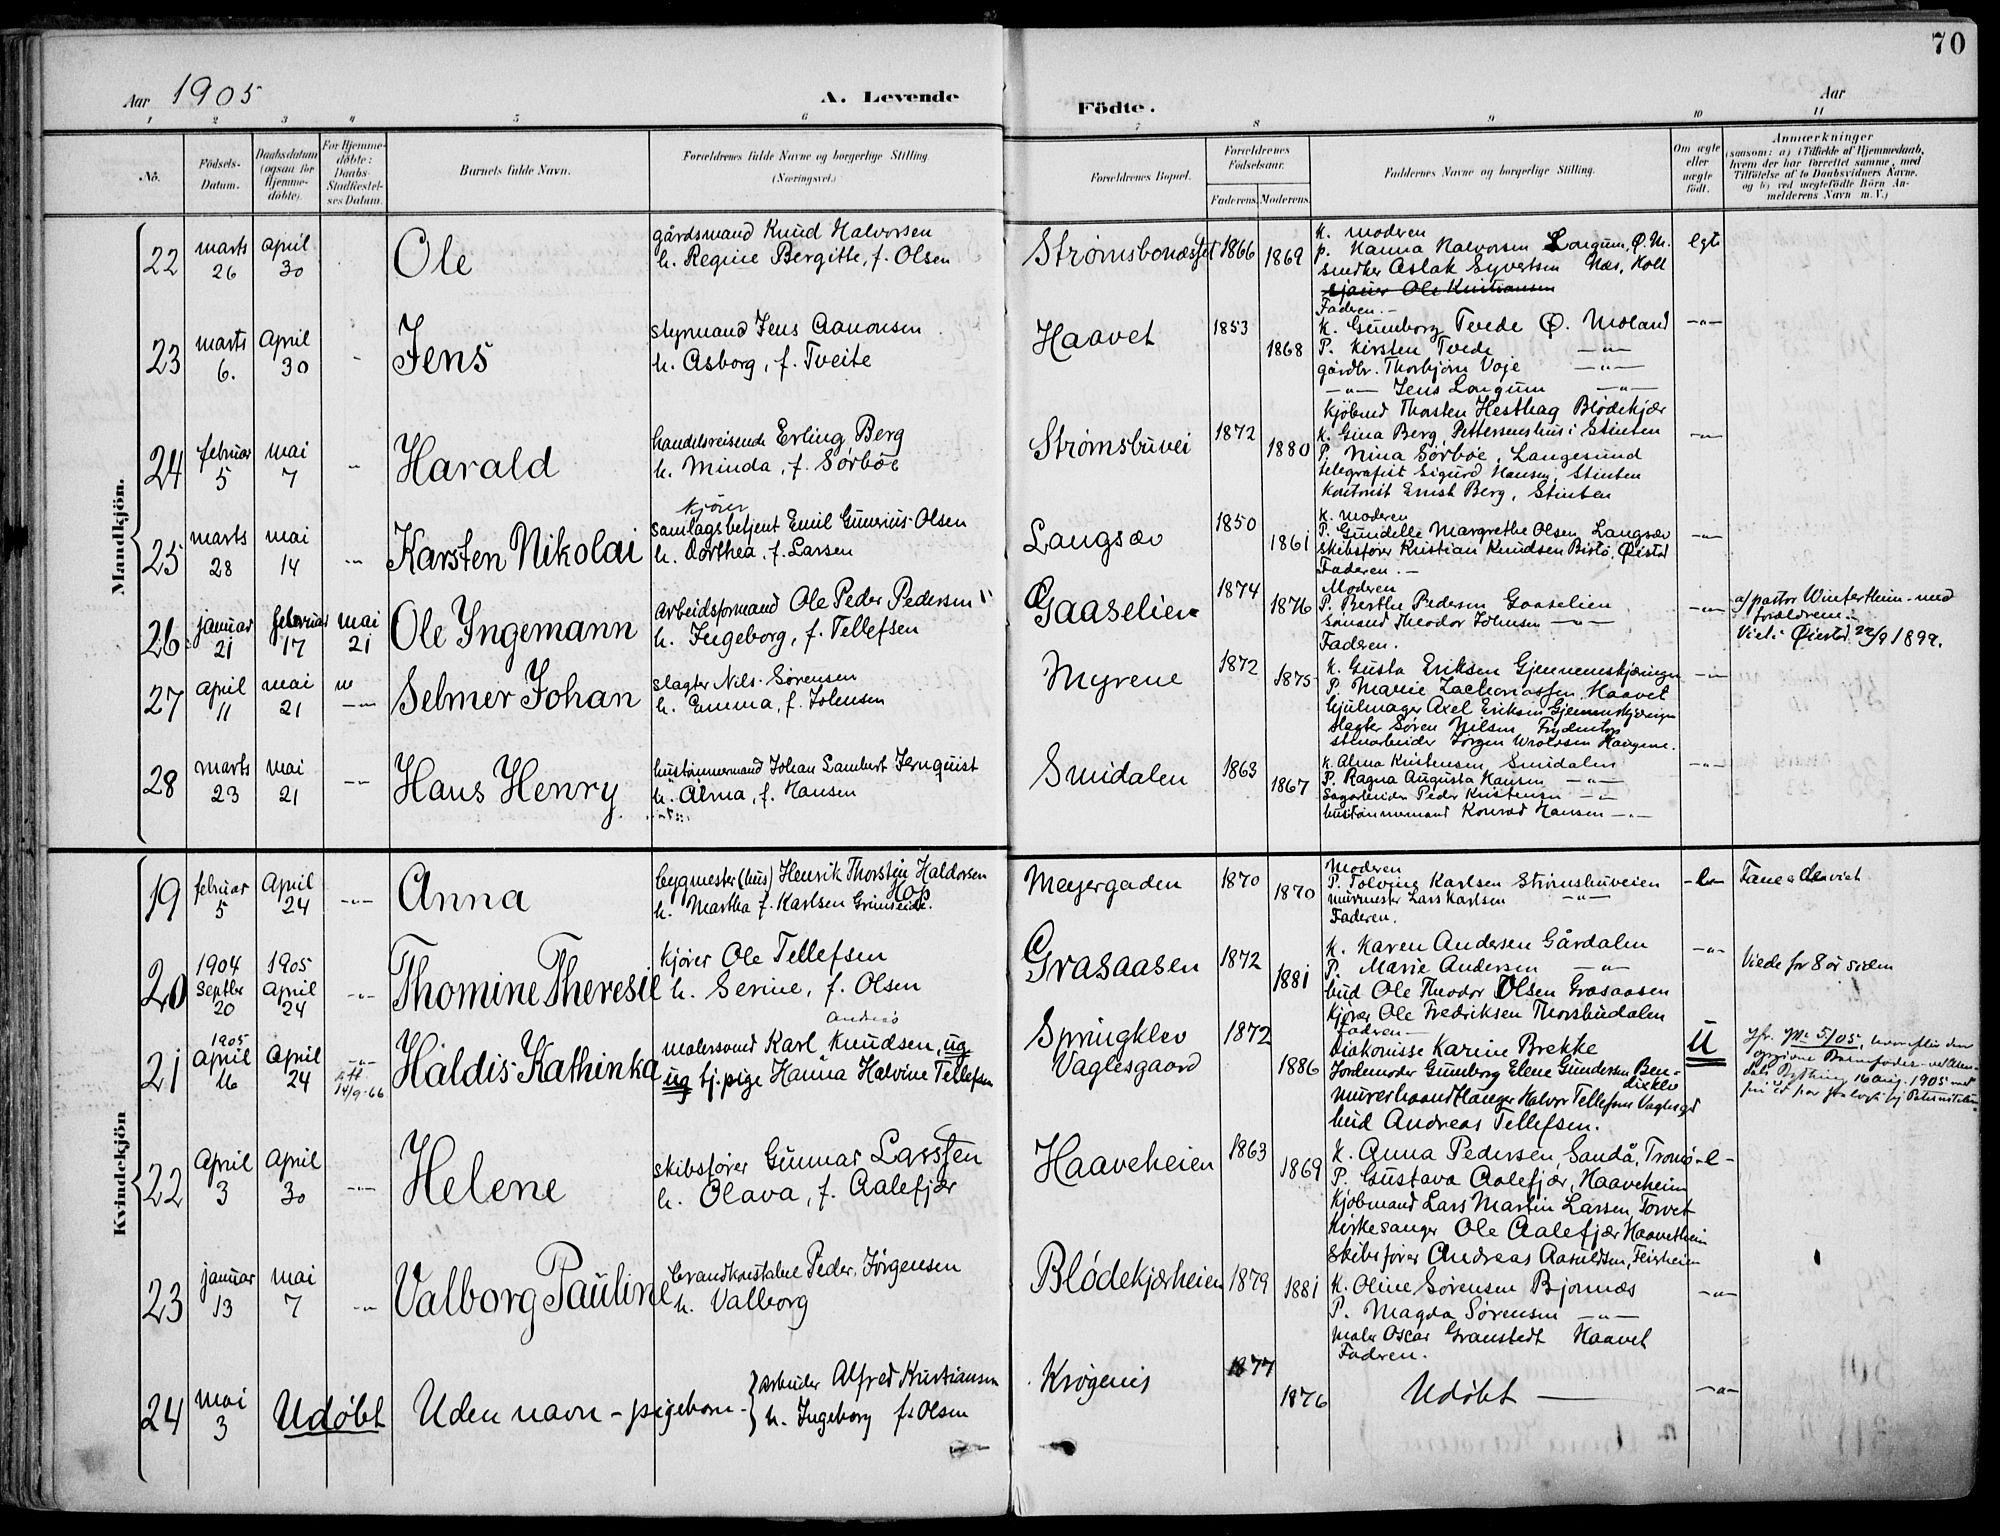 70
Aar 1905 A. Levende Födte. Aar
1 2 3 4 5 6 7 8 9 10 11
No. Födsels-Datum. Daabsdatum (ogsaa for Hjemmedöbte). For Hjemmedöbte: Daabs-Stadfæstelses Datum. Barnets fulde Navn. Forældrenes fulde Navne og borgerlige Stilling (Næringsvei.) Forældrenes Bopæl. Forældrenes Födselsaar. Faderens. Moderens. Faddernes Navne og borgerlige Stilling. Om ægte eller uægte födt. Anmærkninger (saasom: a) i Tilfælde af Hjemmedaab, hvem der har forrettet samme, med Tilföielse af to Daabsvidners Navne, og b) ved uægtefödte Börn Anmelderens Navn m. V.)
Mandkjön.
22 marts 26 april 30 Ole
gårdsmand Knud Halvorsen
h. Regine Bergitte, f. Olsen
Strømsbonæsset 1866 1869
K. moderen
P. Hanna Halvorsen Longum, Ø. M.
smidker Aslak Syvertsen Næs, Holt
ejauer Ole Kristiansen
Faderen.-
egte
23 marts 6. April 30 Jens
styrmand Jens Aanonsen
h. Asborg, f. Tveite
Haavet 1853 1868
K. Gunborg Tvede Ø. Moland
P. Kirsten Tvede -"-
gårdbr. Thorbjørn Voje -"-
-"- Jens Longum -"-
Kjøbmd Thorsten Hesthag Blødekjær
-"-
24 februar 5 mai 7 Harald
handelsreisende Erling Berg
h. Minda, f. Sørbøe
Strømsbuvei 1872 1880
K. Gina Berg, Pettersenshus i Stinten
P. Nina Sørbøe, Langesund
telegrafist Sigurd Hansen, Stinten
Kontorist Ernst Berg, Stinten
-"-
25 marts 28 mai 14 Karsten Nikolai
kjører
samlagsbetjent Emil Gunerius Olsen
h. Dorthea, f. Larsen
Langsæv 1850 1861
K. moderen
P. Gundelle Margrethe Olsen, Langsæv
skibsfører Kristian Knudsen Bistø, Øiestad
Faderen.-
-"-
26 januar 21 februar 17 mai 21 Ole Ingemann
arbeidsformand Ole Peder Pedersen
h. Ingeborg, f. Tellefsen
Gaaselien 1874 1876
Moderen
P. Berthe Pedersen Gaaselien
Sømand Theodor Johnsen -"-
Faderen.
-"-
af pastor Winterthein med
forældrene.
Viet i Øiestad 22/9 1899.
27 april 11 mai 21 Selmer Johan
slagter Nils Sørensen
h. Emma, f. Johnsen
Myrene 1872 1875
K. Gusta Eriksen Gjennemskjæringen
P. Marie Zachariassen, Haavet
hjulmager Axel Eriksen Gjennemskjæringen
slagter Søren Nilsen, Frydentop
stenarbeider Jørgen Wroldsen Haugene.
-"-
28 marts 23 mai 21 Hans Henry
hustømmermand Johan Lambert Jernquist
h. Alma, f. Hansen
Smidalen 1863 1867
K. Alma Kristensen, Smidalen
P. Ragna Augusta Hansen -"-
Sagarbeider Peder Kristensen -"-
hustømmermand Konrad Hansen -"-
-"-
Kvindekjön
19 februar 5 April 24 Anna
bygmester (hus) Henrik Thorstein Haldorsen Hop
h. Martha f. Karlsen Grimseide.
Meyergaden 1870 1870
Moderen
P. Tolvine Karlsen Strømsbuveien
murmester Lars Karlsen -"-
Faderen.
-e-
20 1904 septbr 20 1905 April 24 Thomine Theresie
kjører Ole Tellefsen
h. Serine, f. Olsen
Grasaasen 1872 1881
K. Karen Andersen Gårdalen
P. Marie Andersen -"-
bud Ole Theodor Olsen Grasaasen
kjører Ole Fredriksen Thorsbudalen
Faderen-
-"-
Viede for 8 år siden
21 1905 April 16 April 24 14/9-66 Haldis Kathinka
malersvend Karl Knudsen, ug
ug tj.pige Hanna Halvine Tellefsen
Springklev Vaglesgaard 1872 1886
Diakonisse Karine Brekke
Jordemoder Gunborg Elene Gundersen Bendiksklev
murerhaandtlanger Halvor Tellefsen Vaglesgd
bud Andreas Tellefsen.
U
22 April 3 April 30 Helene
skibsfører Gunnar Larssen
h. Olava, f. Aalefjær
Haaveheien 1863 1869
K. Anna Pedersen, Sandå, Tromø
P. Gustava Aalefjær, Haaveheien
Kjøbmand Lars Martin Larsen, Torvet
Kirkesanger Ole Aalefjær Haaveheien
Skibsfører Andreas Aasuldsen, Feirheien
-e-
23 januar 13 mai 7 Valborg Pauline
brandkonstabel Peder Jørgensen
h. Valborg
Blødekjærheien 1879 1881
K. Oline Sørensen Bjornæs
P. Magda Sørensen -"-
maler Oscar Granstedt Haavet
Faderen.
-"-
24 mai 3 Udøbt Uden navn - pigebarn -
arbeider Alfred Kristiansen
h. Ingeborg f. Olsen
Krøgenes 1877 1876
Udøbt -
-"-